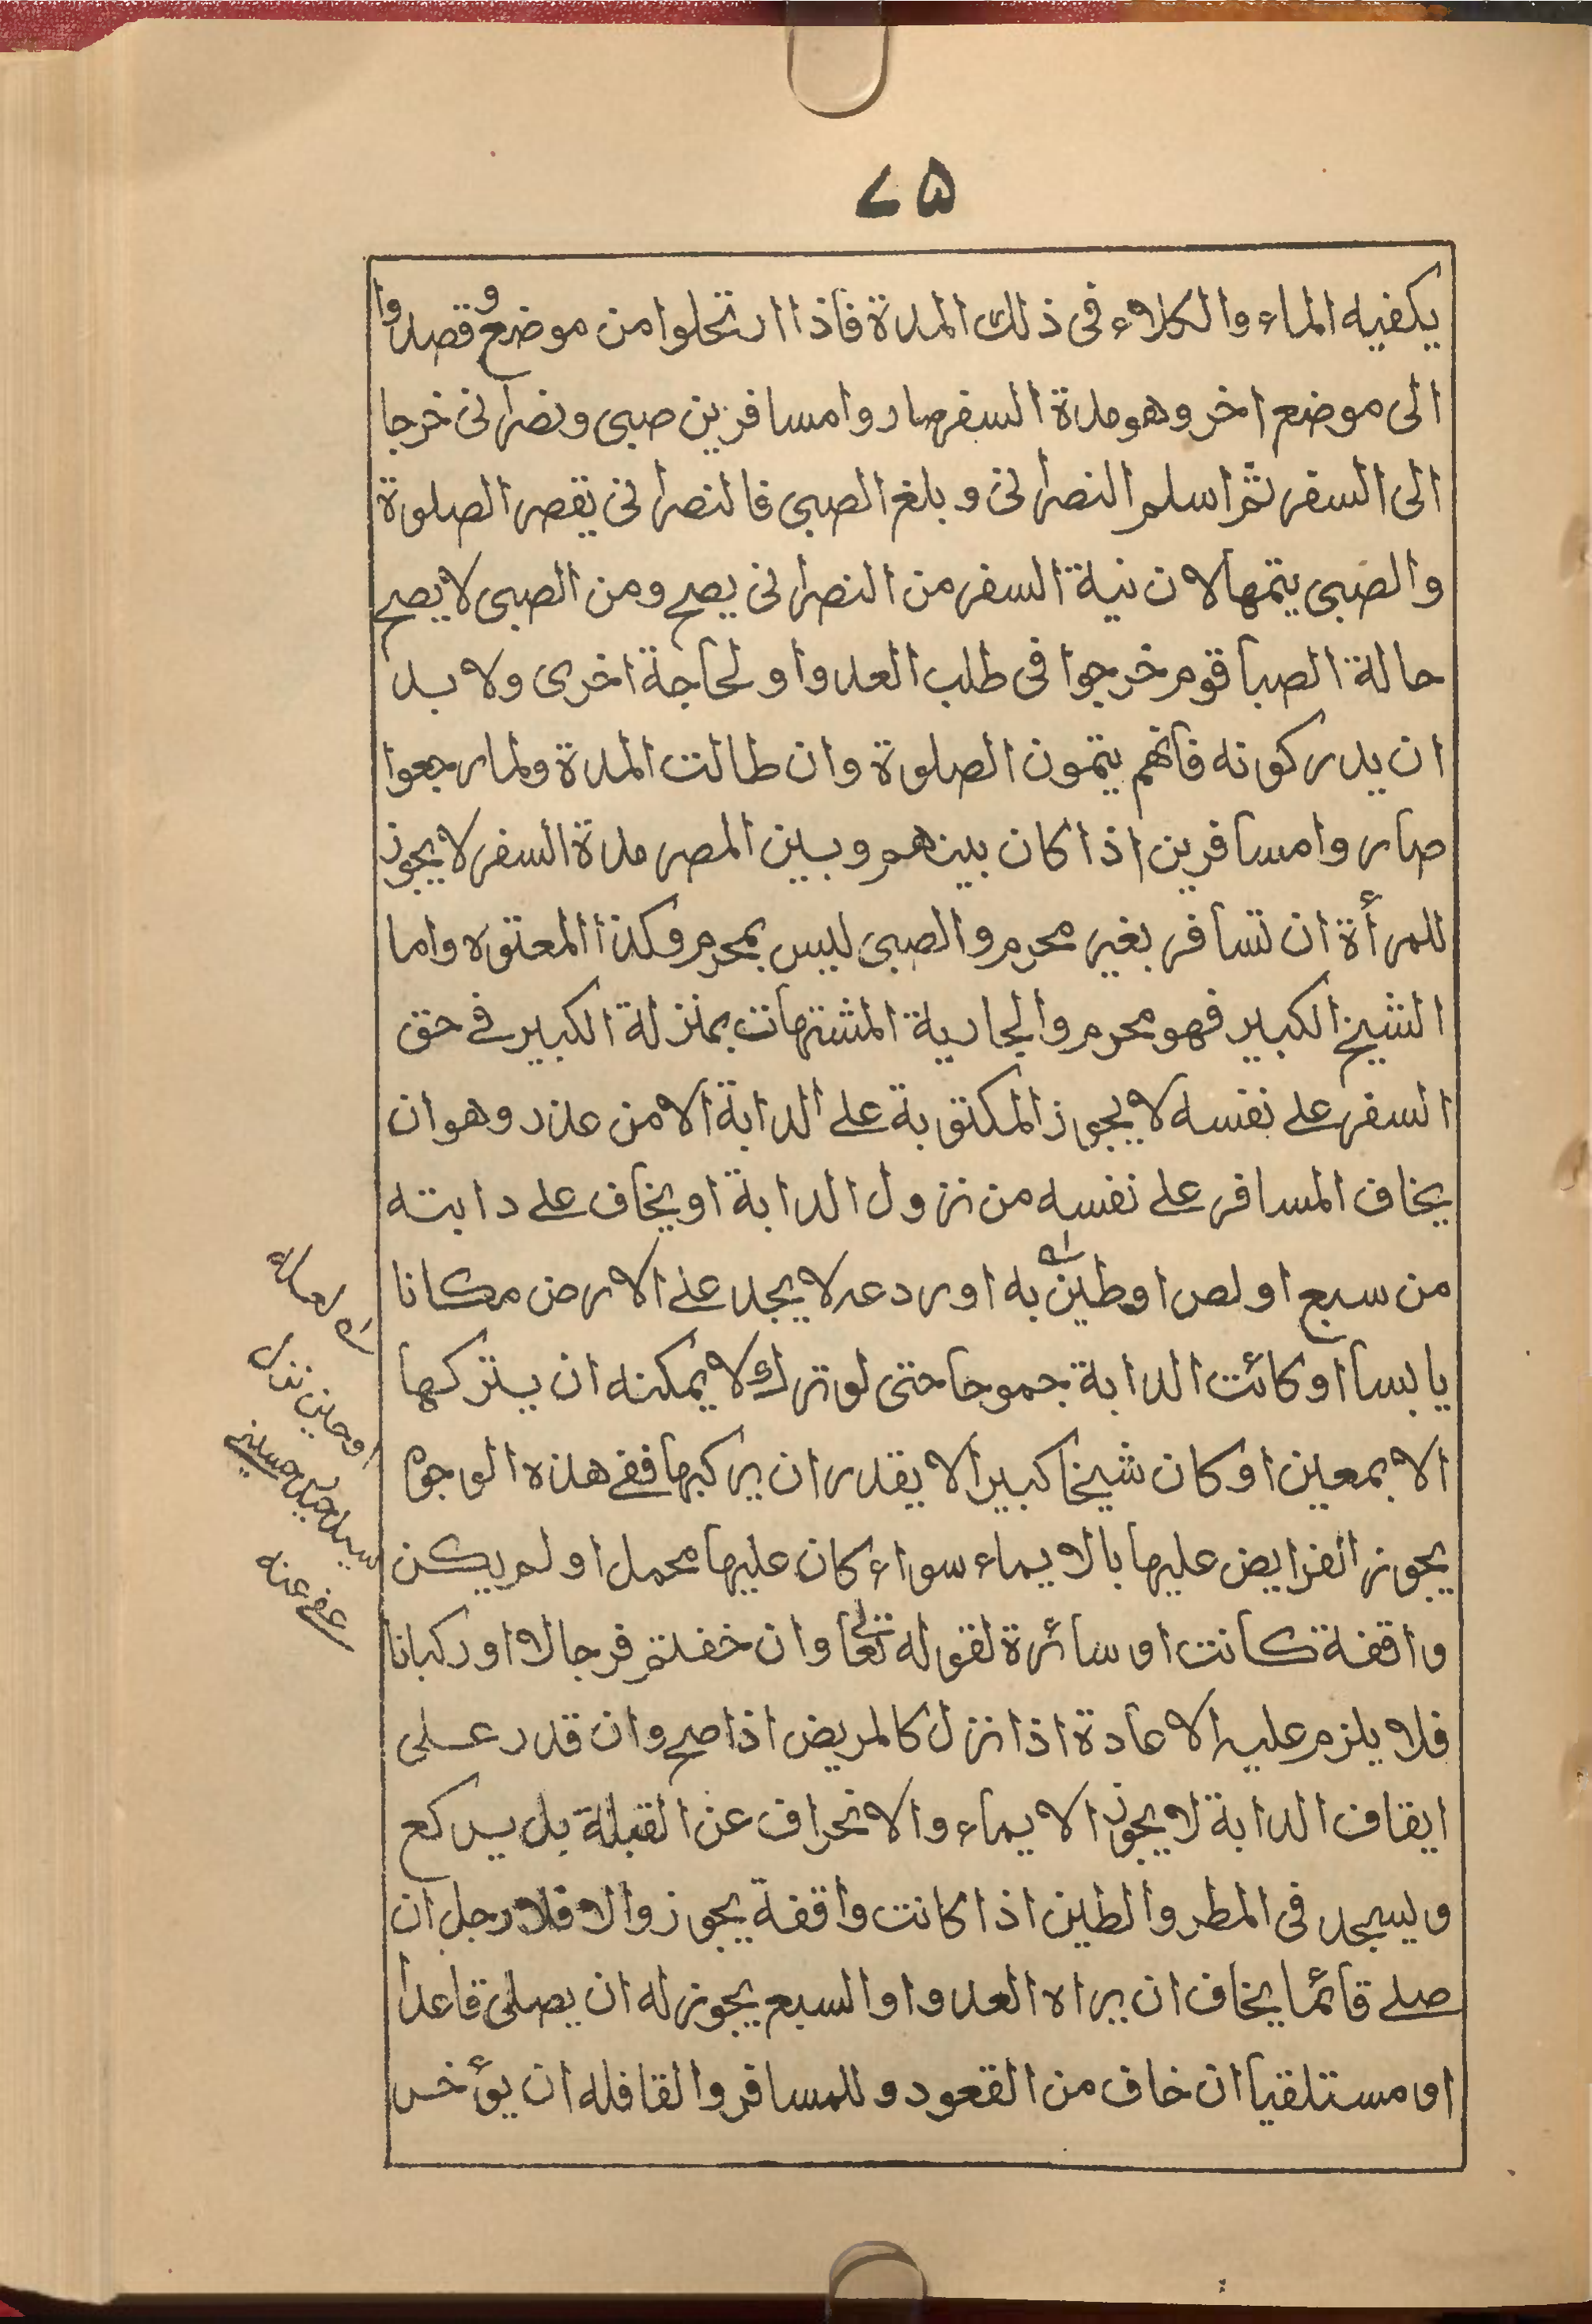 ۷۵
يكفيه الماء والكلاء فى ذلك المدة فاذا ارتحلوا من موضع وقصدوا
الى موضع اخر وهو مدة السفر صاروا مسافرين صبى ونصرانى خرجا
الى السفر ثم اسلم النصرانى و بلغ الصبى فالنصرانى يقصر الصلوة
والصبى يتمها لان نية السفر من النصرانى يصح ومن الصبى لا يصح
حالة الصبا قوم خرجوا فى طلب العدو او لحاجة اخرى ولا بد
ان يدركونه فانهم يتمون الصلوة وان طالت المدة ولما رجعوا
صاروا مسافرين اذا كان بينهم وبين المصر مدة السفر لا يجوز
للمرأة ان تسافر بغير محرم والصبى ليس بمحرم وكذا المعتوه واما
الشيخ الكبير فهو محرم والجارية المشتهات بمنزلة الكبير فے حق
السفر علے نفسه لا يجوز المكتوبة علے الدابة الا من عذر وهو ان
يخاف المسافر علے نفسه من نزول الدابة او يخاف علے دابته
من سبع او لص او طين به او ردعه لا يجد علے الارض مكانا
يابسا او كائت الدابة جموحا حتى لو ترك لا يمكنه ان يتركها
الا بمعين او كان شيخا كبيرا لا يقدر ان يركبها ففے هذه الوجوه
يجوز الفرايض عليها بالايماء سواء كان عليها محمل او لم يكن
واقفة كانت او سائرة لقوله تعالى وان خفتم فرجالا او ركبانا
فلا يلزم عليه الاعادة اذا نزل كالمريض اذا صح وان قدر عــلى
ايقاف الدابة لا يجوز الايماء والانحراف عن القبلة بل يركع
ويسجد فى المطر والطين اذا كانت واقفة يجوز والا فلا رجل ان
صلے قائما يخاف ان يراه العدو او السبع يجوز له ان يصلى قاعدا
او مستلقيا ان خاف من القعود و للمسافر والقافله ان يؤخر
لعله
او حين نزل
عفے عنه